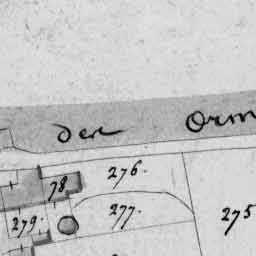 den Orm
276.
78
277.
275
279.